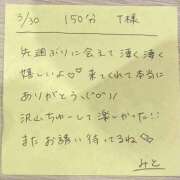 3/30 150分 T様
先週ぶりに会えて凄く凄く
嬉しいよ♡♡ 来てくれて本当に
ありがとう、(˘ω˘)/
沢山ちゅーして楽しかった!!
またお誘い待ってるね♡
みと